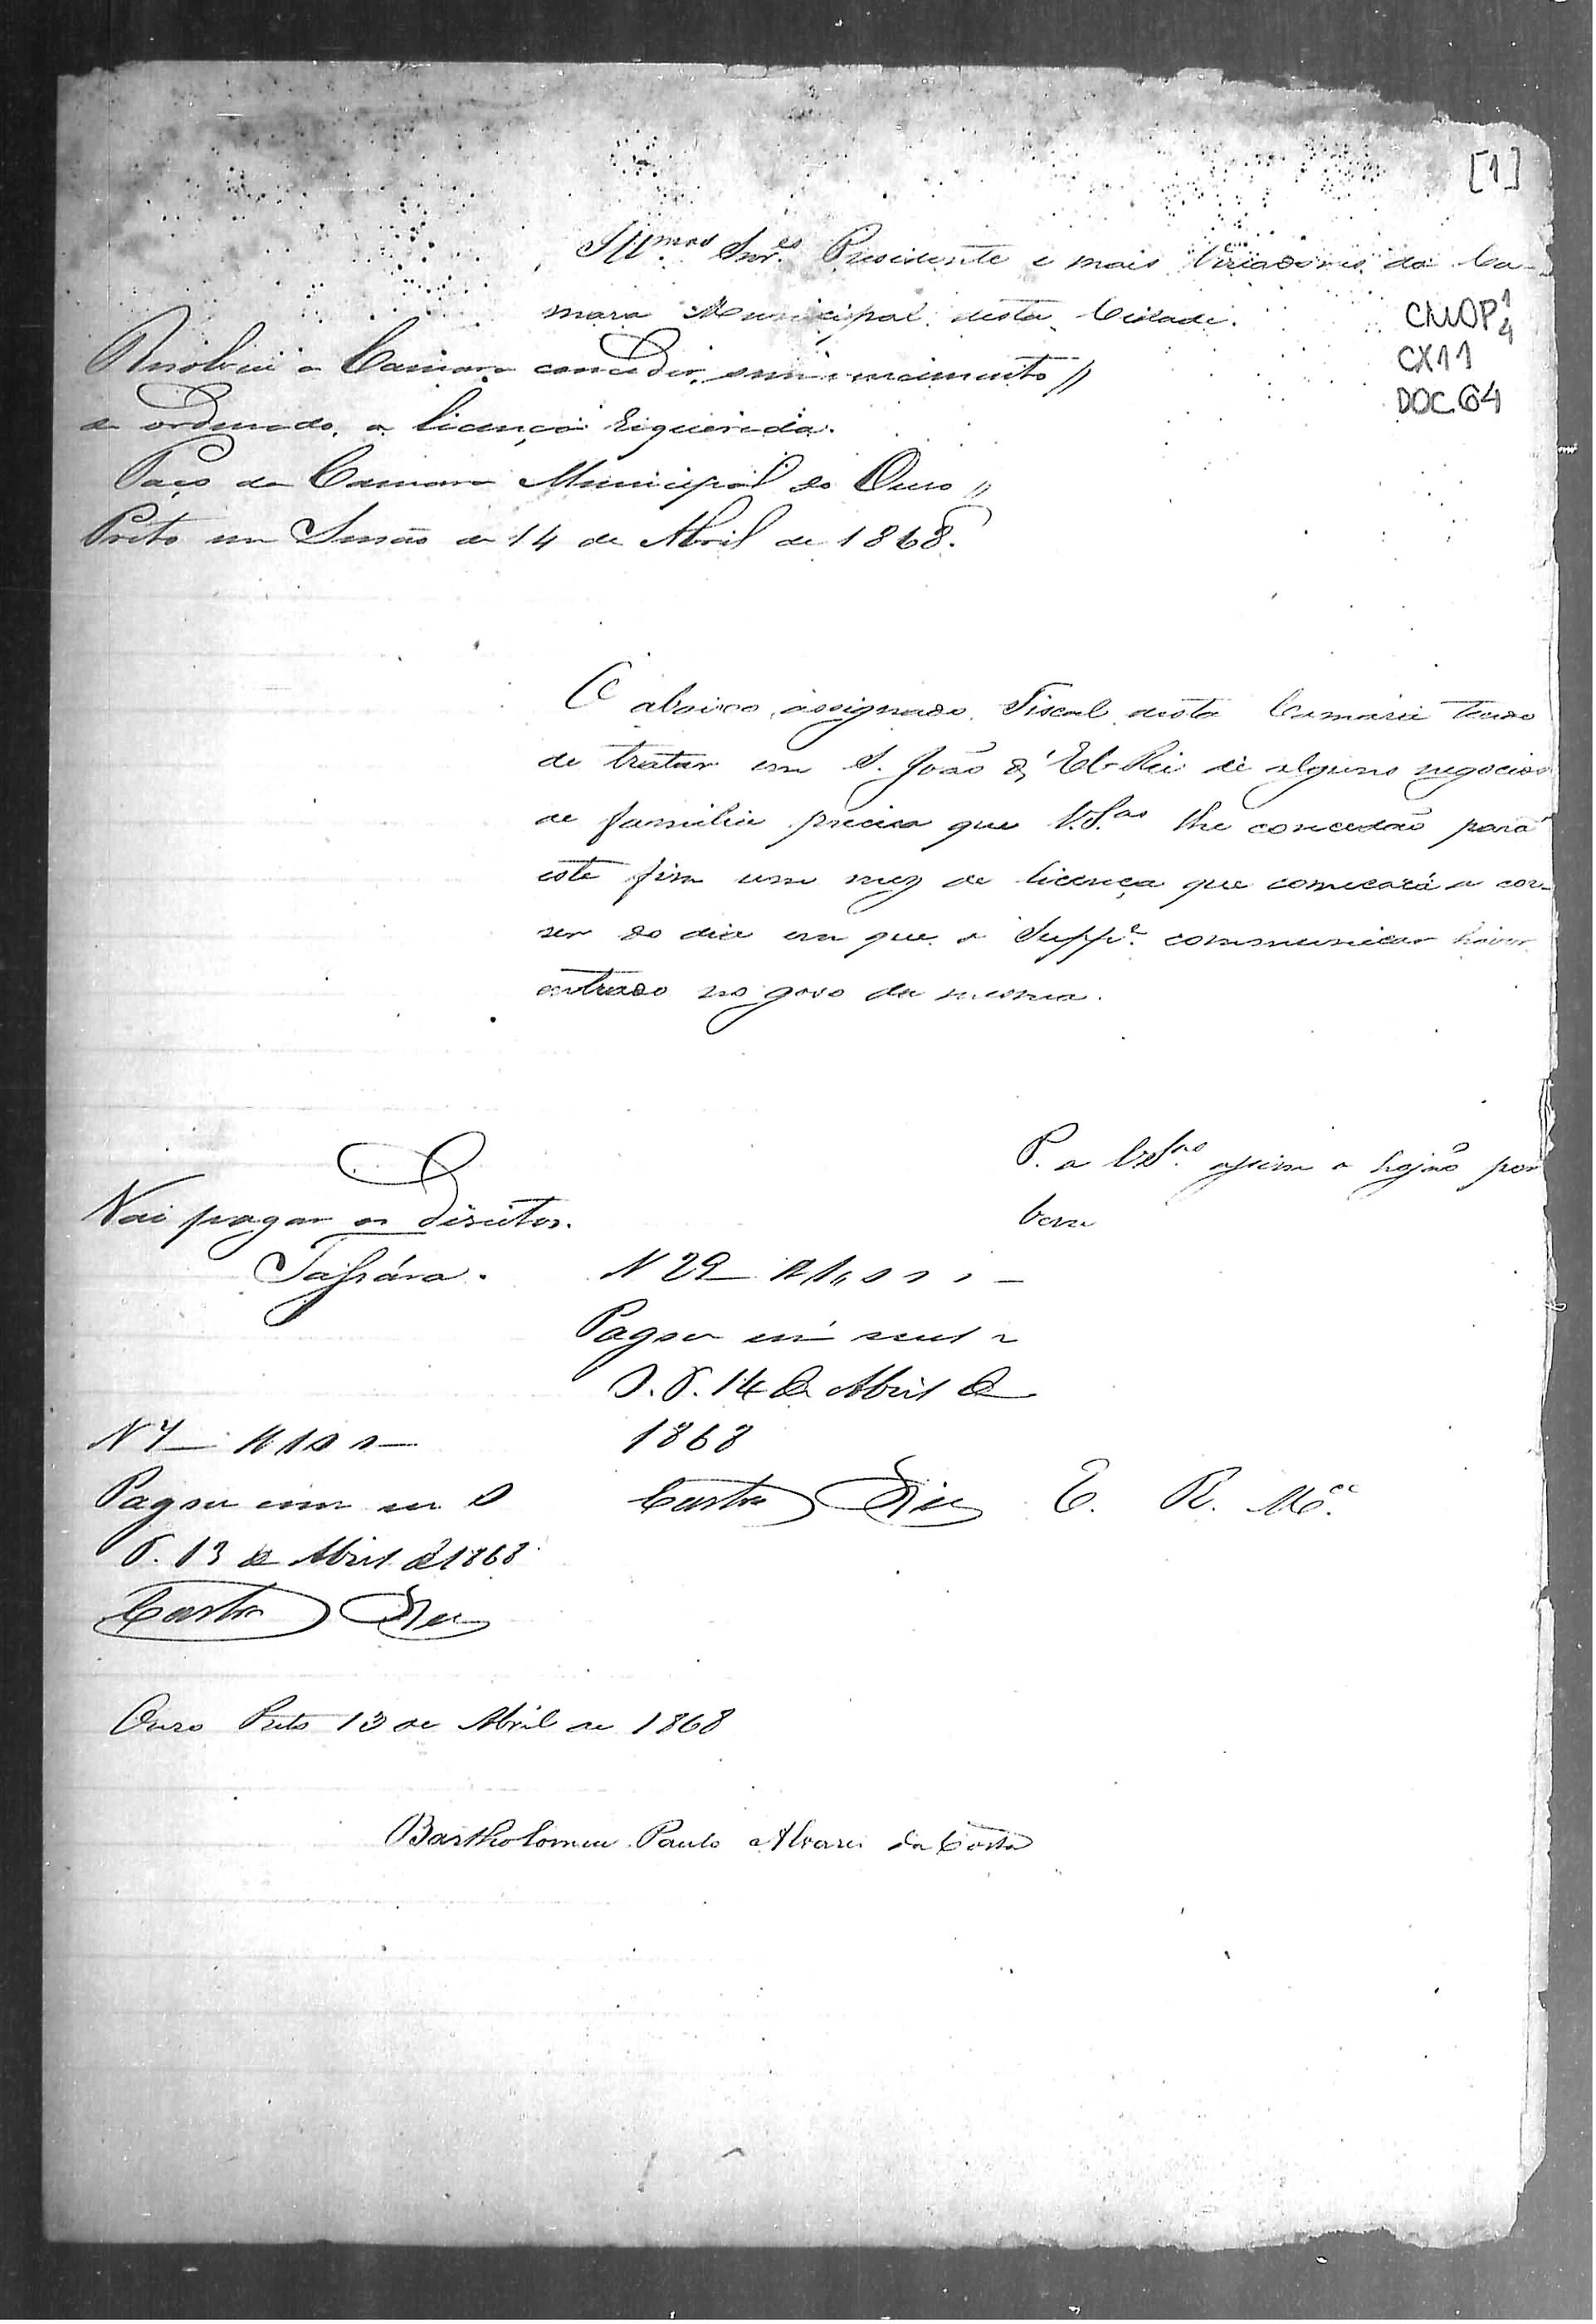 [1]
Ill.mos Snr.es Presidente e mais Vereadores da Ca-
mara Municipal desta Cidade.
CMOP 1
4
CX11
DOC.64
Resolveu a Camara conceder, sem vencimento
de ordenado, a licença requerida.
Paço da Camara Municipal do Ouro
Preto em Sessão de 14 de Abril de 1868.
O abaixo assignado Fiscal desta Camara tendo
de tratar em S. João d'El-Rei de alguns negocios
de familia precisa que V.S.as lhe concedão para
este fim um mez de licença que começará a cor-
rer do dia em que o Supp.e communicar haver
entrado no goso da mesma.
P. a V.S.as assim o hajão por
bem
Vai pagar os Direitos.
N 29
Pagou
O. P. 14 de Abril de
1868
Castro
N 4
Pagou cem rs O
P. 13 de Abril de 1868
Castro
E. R. M.ce
Ouro Preto 13 de Abril de 1868
Bartholomeu Paulo Alvares da Costa